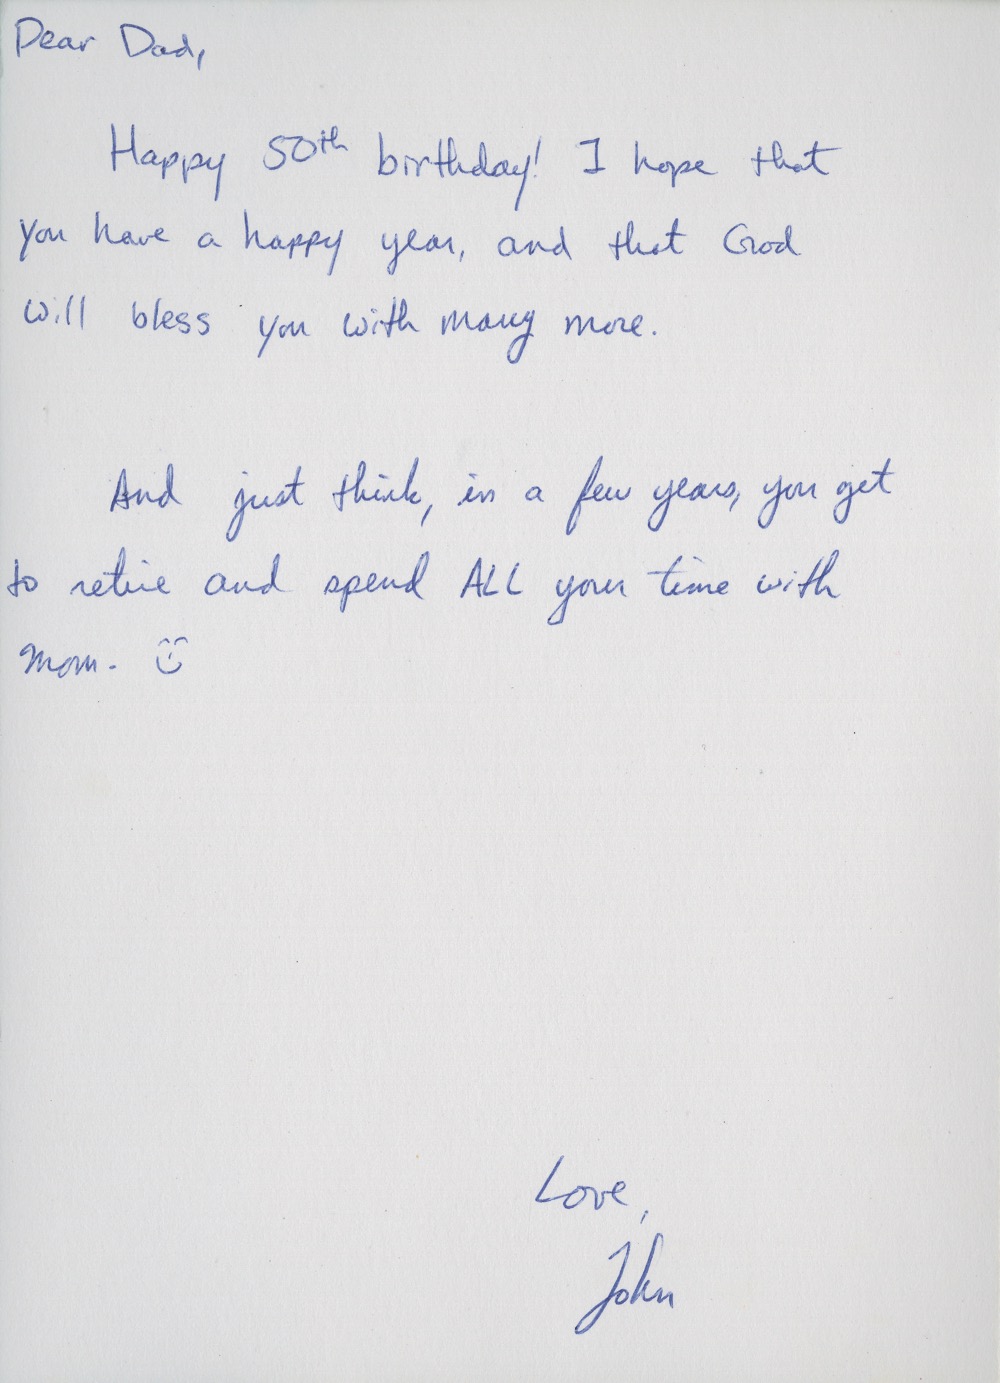 Dear Dad,
Happy 50th birthday! I hope that
you have a happy year, and that God
will bless you with many more.
And just think, in a few years, you get
to retire and spend ALL your time with
mom. 
Love,
John